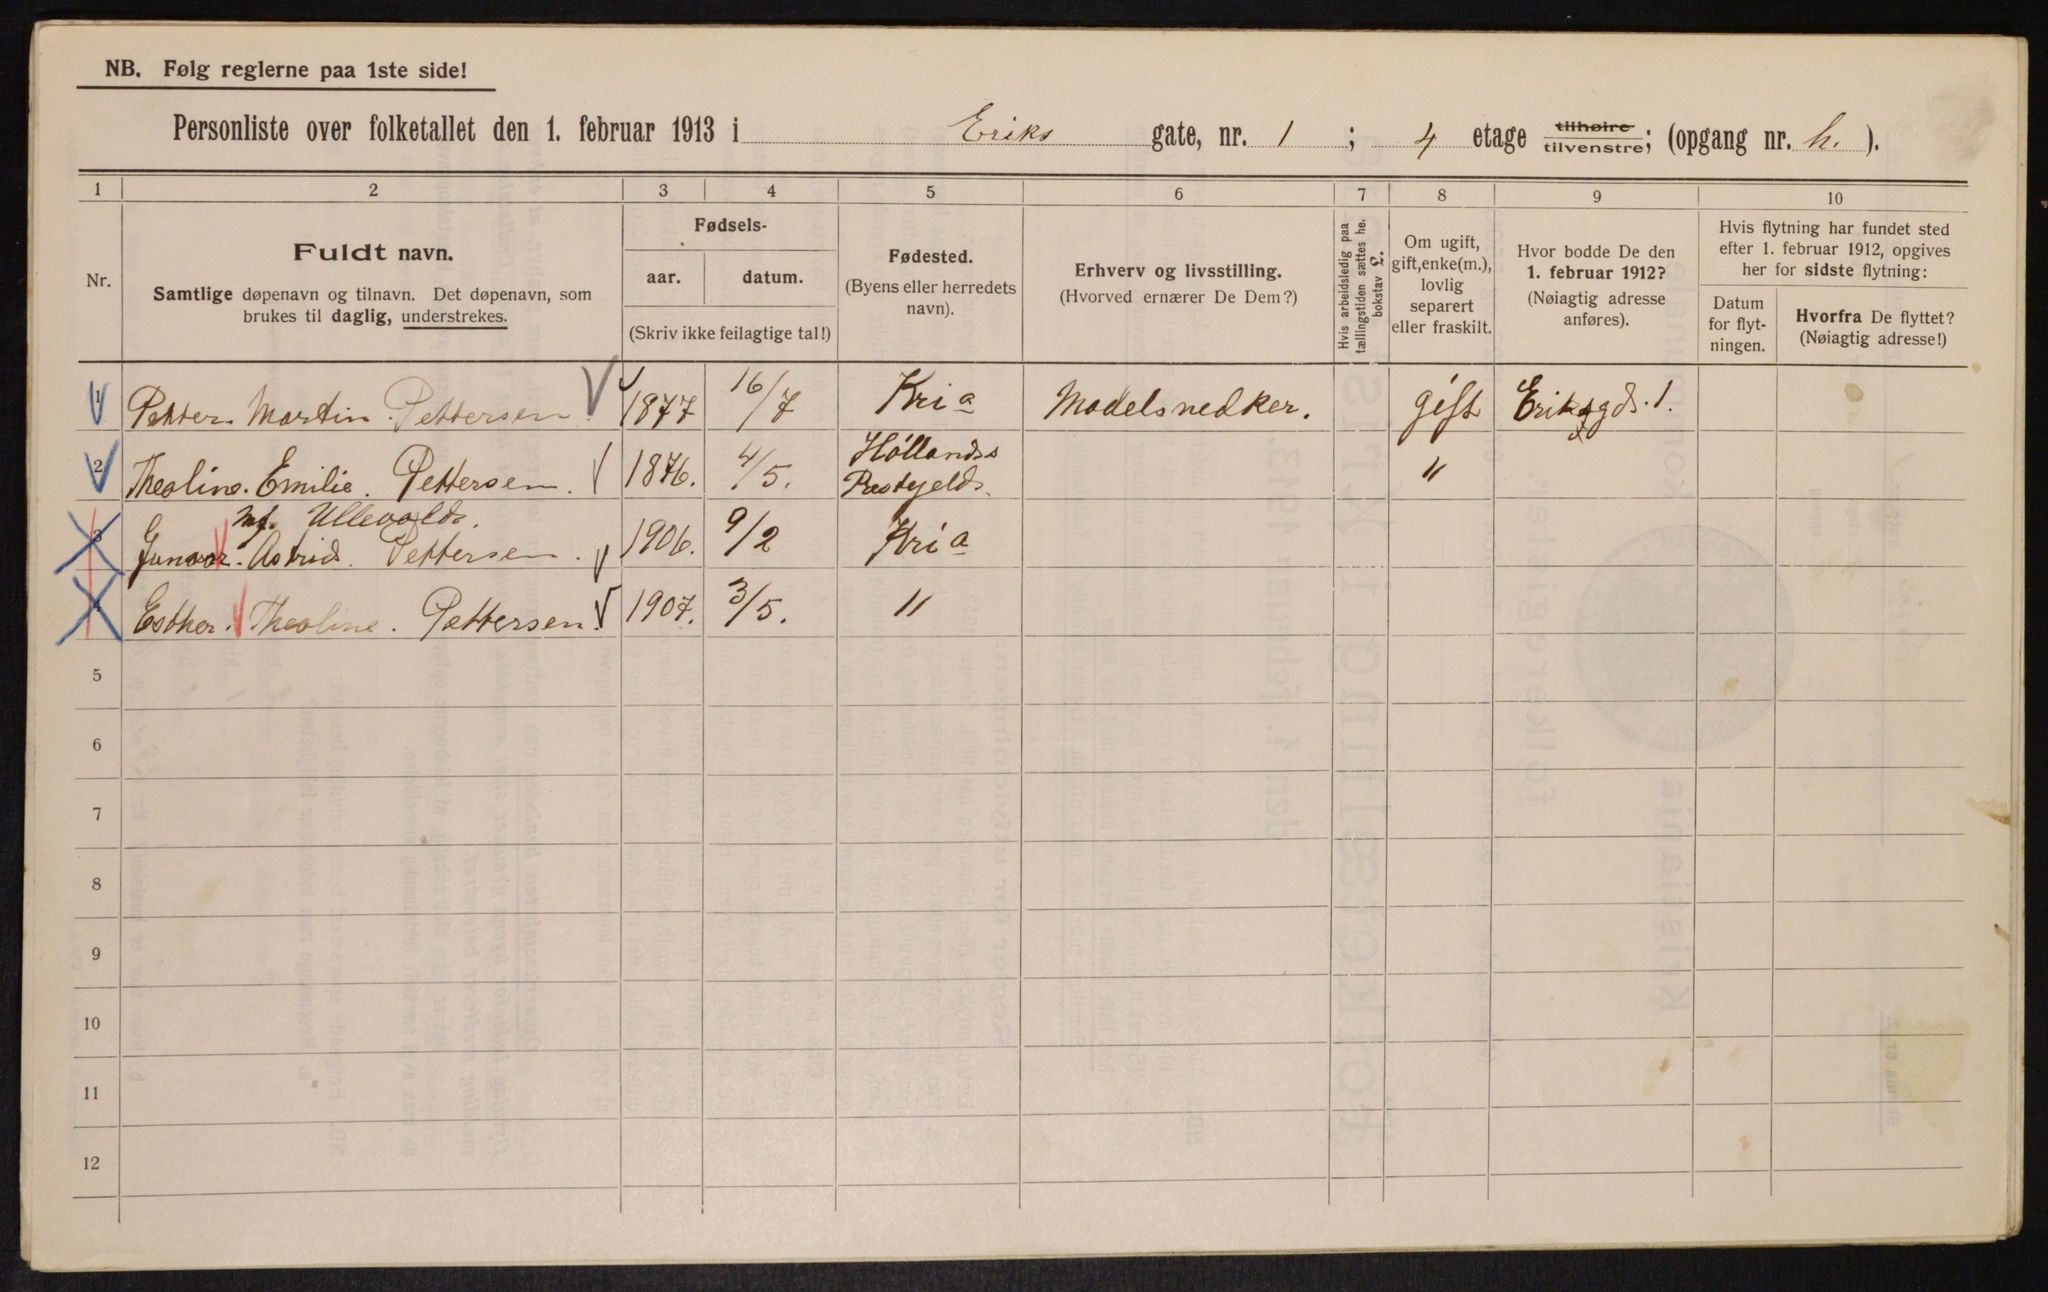 NB. Følg reglerne paa 1ste side!
Personliste over folketallet den 1. februar 1913 i Eriks gate, nr. 1 ; 4 etage tilhøire tilvenstre; (opgang nr. h. ).
1 2 3 4 5 6 7 8 9 10
Nr.
Fuldt navn.
Samtlige døpenavn og tilnavn. Det døpenavn, som
brukes til daglig, understrekes.
Fødsels-
aar. datum.
(Skriv ikke feilagtige tal!)
Fødested.
(Byens eller herredets
navn).
Erhverv og livsstilling.
(Hvorved ernærer De Dem?)
Hvis arbeidsledig paa
tællingstiden sættes he.
bokstav L.
Om ugift,
gift, enke(m.),
lovlig
separert
eller fraskilt.
Hvor bodde De den
1. februar 1912?
(Nøiagtig adresse
anføres).
Hvis flytning har fundet sted
efter 1. februar 1912, opgives
her for sidste flytning:
Datum
for flyt-
ningen.
Hvorfra De flyttet?
(Nøiagtig adresse!)
1 Petter Martin Pettersen 1877 16/7 Kria Modelsnedker. gift Eriksgd. 1.
2 Theoline Emilie Pettersen. 1876. 4/5. Hóllands Præstegjelds. "
Ullevolds.
3 Astrid. Pettersen. 1906. 9/2 Kria
4 Esther. Theoline. Pettersen. 1907. 3/5. "
5
6
7
8
9
10
11
12